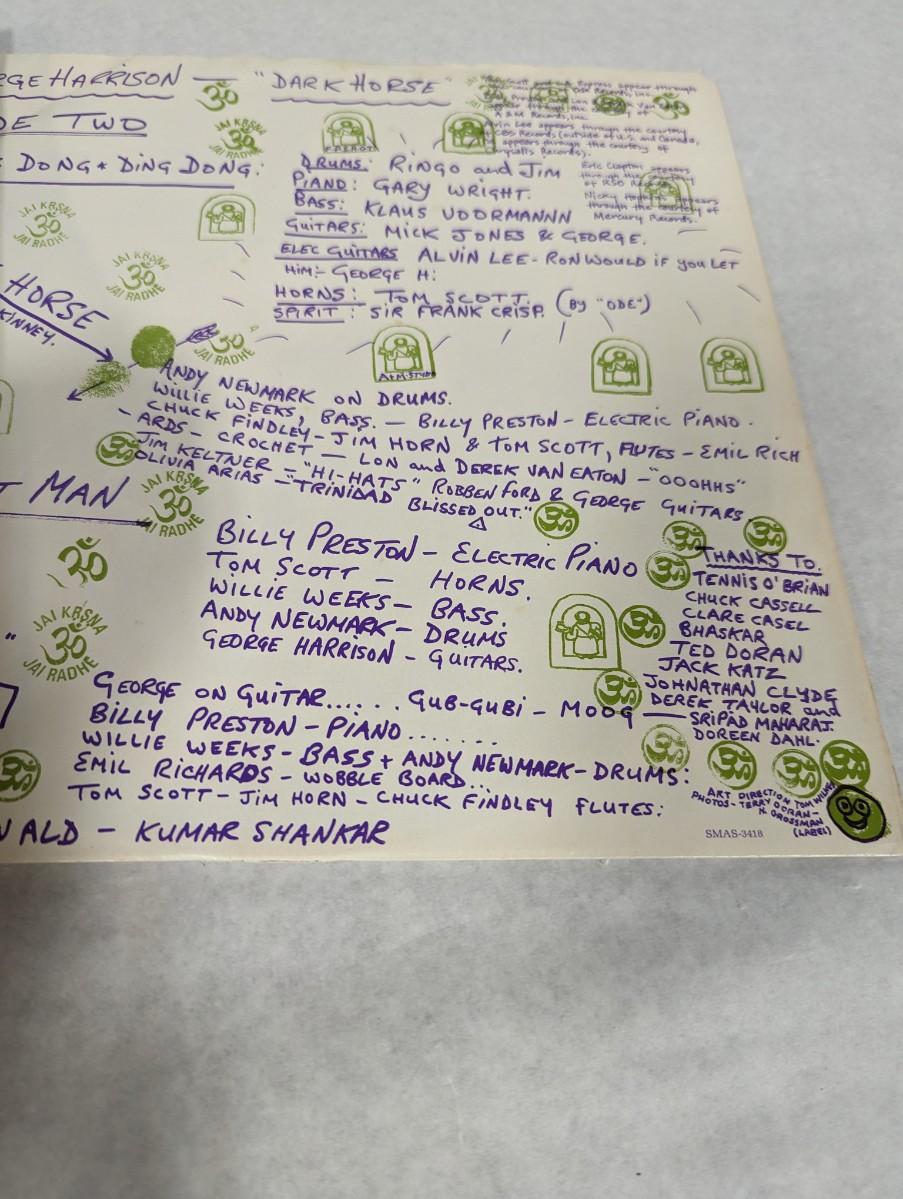 RGE HARRISON — "DARK HORSE"
DE TWO
DONG * DING DONG:
DRUMS: RINGO and JIM
PIANO: GARY WRIGHT.
BASS: KLAUS VOORMANNN
GUITARS: MICK JONES & GEORGE.
ELEC GUITARS ALVIN LEE - RON WOULD IF YOU LET
HIM:- GEORGE H:
HORNS: TOM SCOTT. (BY "ODE")
SPIRIT: SIR FRANK CRISP.
appear through
A&M Records, Inc.
Alvin Lee appears through the courtesy
CBS Records (outside of U.S. and Canada,
appears through the courtesy of
Records).
Eric Clapton appears
through the courtesy
of RSO
Nicky Hopkins appears
through the courtesy of
Mercury Records.
F.P.S.H.O.T.
JAI KRSNA
JAI RADHE
HORSE
KINNEY.
A&M STUDIO
ANDY NEWMARK ON DRUMS.
WILLIE WEEKS, BASS. — BILLY PRESTON - ELECTRIC PIANO.
CHUCK FINDLEY - JIM HORN & TOM SCOTT, FLUTES - EMIL RICH
- ARDS - CROCHET — LON and DEREK VAN EATON - "OOOHHS"
JIM KELTNER - "HI-HATS" ROBBEN FORD & GEORGE GUITARS
OLIVIA ARIAS - "TRINIDAD BLISSED OUT."
T MAN
JAI KRSNA
ॐ
JAI RADHE
BILLY PRESTON - ELECTRIC PIANO
TOM SCOTT — HORNS.
WILLIE WEEKS - BASS.
ANDY NEWMARK - DRUMS
GEORGE HARRISON - GUITARS.
THANKS TO.
TENNIS O'BRIAN
CHUCK CASSELL
CLARE CASEL
BHASKAR
TED DORAN
JACK KATZ
JOHNATHAN CLYDE
DEREK TAYLOR and
SRIPAD MAHARAJ.
DOREEN DAHL.
JAI KRSNA
ॐ
JAI RADHE
GEORGE ON GUITAR...... GUB-GUBI - MOOG
BILLY PRESTON - PIANO.......
WILLIE WEEKS - BASS + ANDY NEWMARK - DRUMS:
EMIL RICHARDS - WOBBLE BOARD...
TOM SCOTT - JIM HORN - CHUCK FINDLEY FLUTES:
WALD - KUMAR SHANKAR
ART DIRECTION TOM WILKES
PHOTOS - TERRY DORAN -
H. GROSSMAN
(LABEL)
SMAS-3418